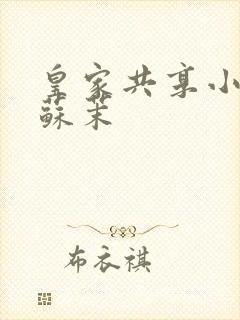 皇家共享小
蘇茉
布衣祺